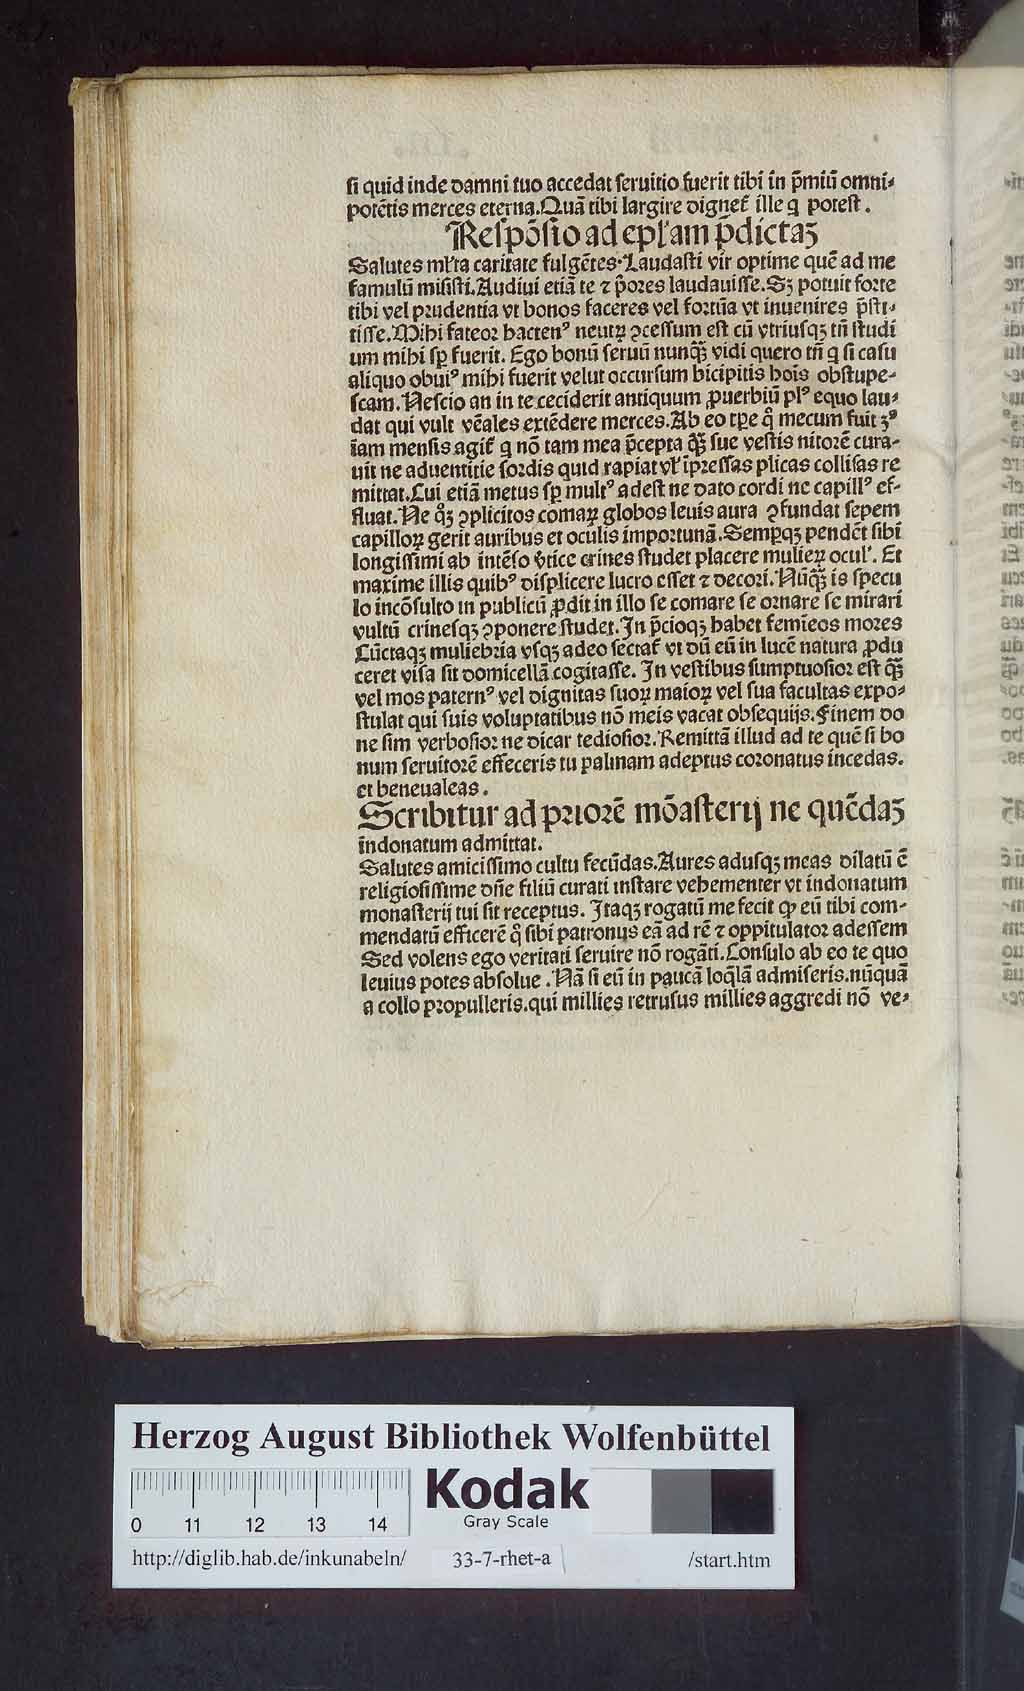 si quid inde damni tuo accedat seruitio fuerit tibi in p̄miū omni⸗
potētis merces eterna.Quā tibi largire dignet᷑ ille q̄ potest.
Respōsio ad epl'am p̄dictaꝫ
Salutes ml'ta caritate fulgētes.Laudasti vir optime quē ad me
famulū misisti.Audiui etiā te ⁊ p̄ores laudauisse.Sꝫ potuit forte
tibi vel prudentia vt bonos faceres vel fortūa vt inuenires p̄sti⸗
tisse.Mihi fateor hacten⁹ neutꝝ ꝓcessum est cū vtriusqꝫ tn̄ studi
um mihi sꝑ fuerit. Ego bonū seruū nunq̄ꝫ vidi quero tn̄ q̄ si casu
aliquo obui⁹ mihi fuerit velut occursum bicipitis hois obstupe⸗
scam.Nescio an in te ceciderit antiquum ꝓuerbiū pl⁹ equo lau⸗
dat qui vult vēales extēdere merces.Ab eo tꝑe q̄ mecum fuit ꝫ⁹
iam mensis agit᷑ q̄ nō tam mea p̄cepta q̄ꝫ sue vestis nitorē cura⸗
uit ne aduentitie sordis quid rapiat vl' īpressas plicas collisas re
mittat.Cui etiā metus sꝑ mult⁹ adest ne dato cordi ne capill⁹ ef⸗
fluat.Ne q̄ꝫ ꝯplicitos comaꝝ globos leuis aura ꝯfundat sepem
capilloꝝ gerit auribus et oculis importunā.Semꝑqꝫ pendēt sibi
longissimi ab intēso v̄tice crines studet placere mulieꝝ ocul'. Et
maxime illis quib⁹ displicere lucro esset ⁊ decori.Nūq̄ꝫ is specu
lo incōsulto in publicū ꝓdit in illo se comare se ornare se mirari
vultū crinesqꝫ ꝯponere studet.In p̄cioqꝫ habet femīeos mores
Cūctaqꝫ muliebria vsqꝫ adeo sectat᷑ vt dū eū in lucē natura ꝓdu
ceret visa sit domicellā cogitasse. In vestibus sumptuosior est q̄ꝫ
vel mos patern⁹ vel dignitas suoꝝ maioꝝ vel sua facultas expo⸗
stulat qui suis voluptatibus nō meis vacat obsequijs.Finem do
ne sim verbosior ne dicar tediosior.Remittā illud ad te quē si bo
num seruitorē effeceris tu palmam adeptus coronatus incedas.
et beneualeas.
Scribitur ad priorē mōasterij ne quēdaꝫ
indonatum admittat.
Salutes amicissimo cultu fecūdas.Aures adusqꝫ meas dilatū ē
religiosissime dn̄e filiū curati instare vehementer vt indonatum
monasterij tui sit receptus. Itaqꝫ rogatū me fecit ꝙ eū tibi com⸗
mendatū efficerē q̄ sibi patronus eā ad rē ⁊ oppitulator adessem
Sed volens ego veritati seruire nō rogāti.Consulo ab eo te quo
leuius potes absolue.Nā si eū in paucā loq̄lā admiseris.nūquā
a collo propulleris.qui millies retrusus millies aggredi nō ve⸗
Herzog August Bibliothek Wolfenbüttel
0 11 12 13 14
Kodak
Gray Scale
http://diglib.hab.de/inkunabeln/ 33-7-rhet-a /start.htm